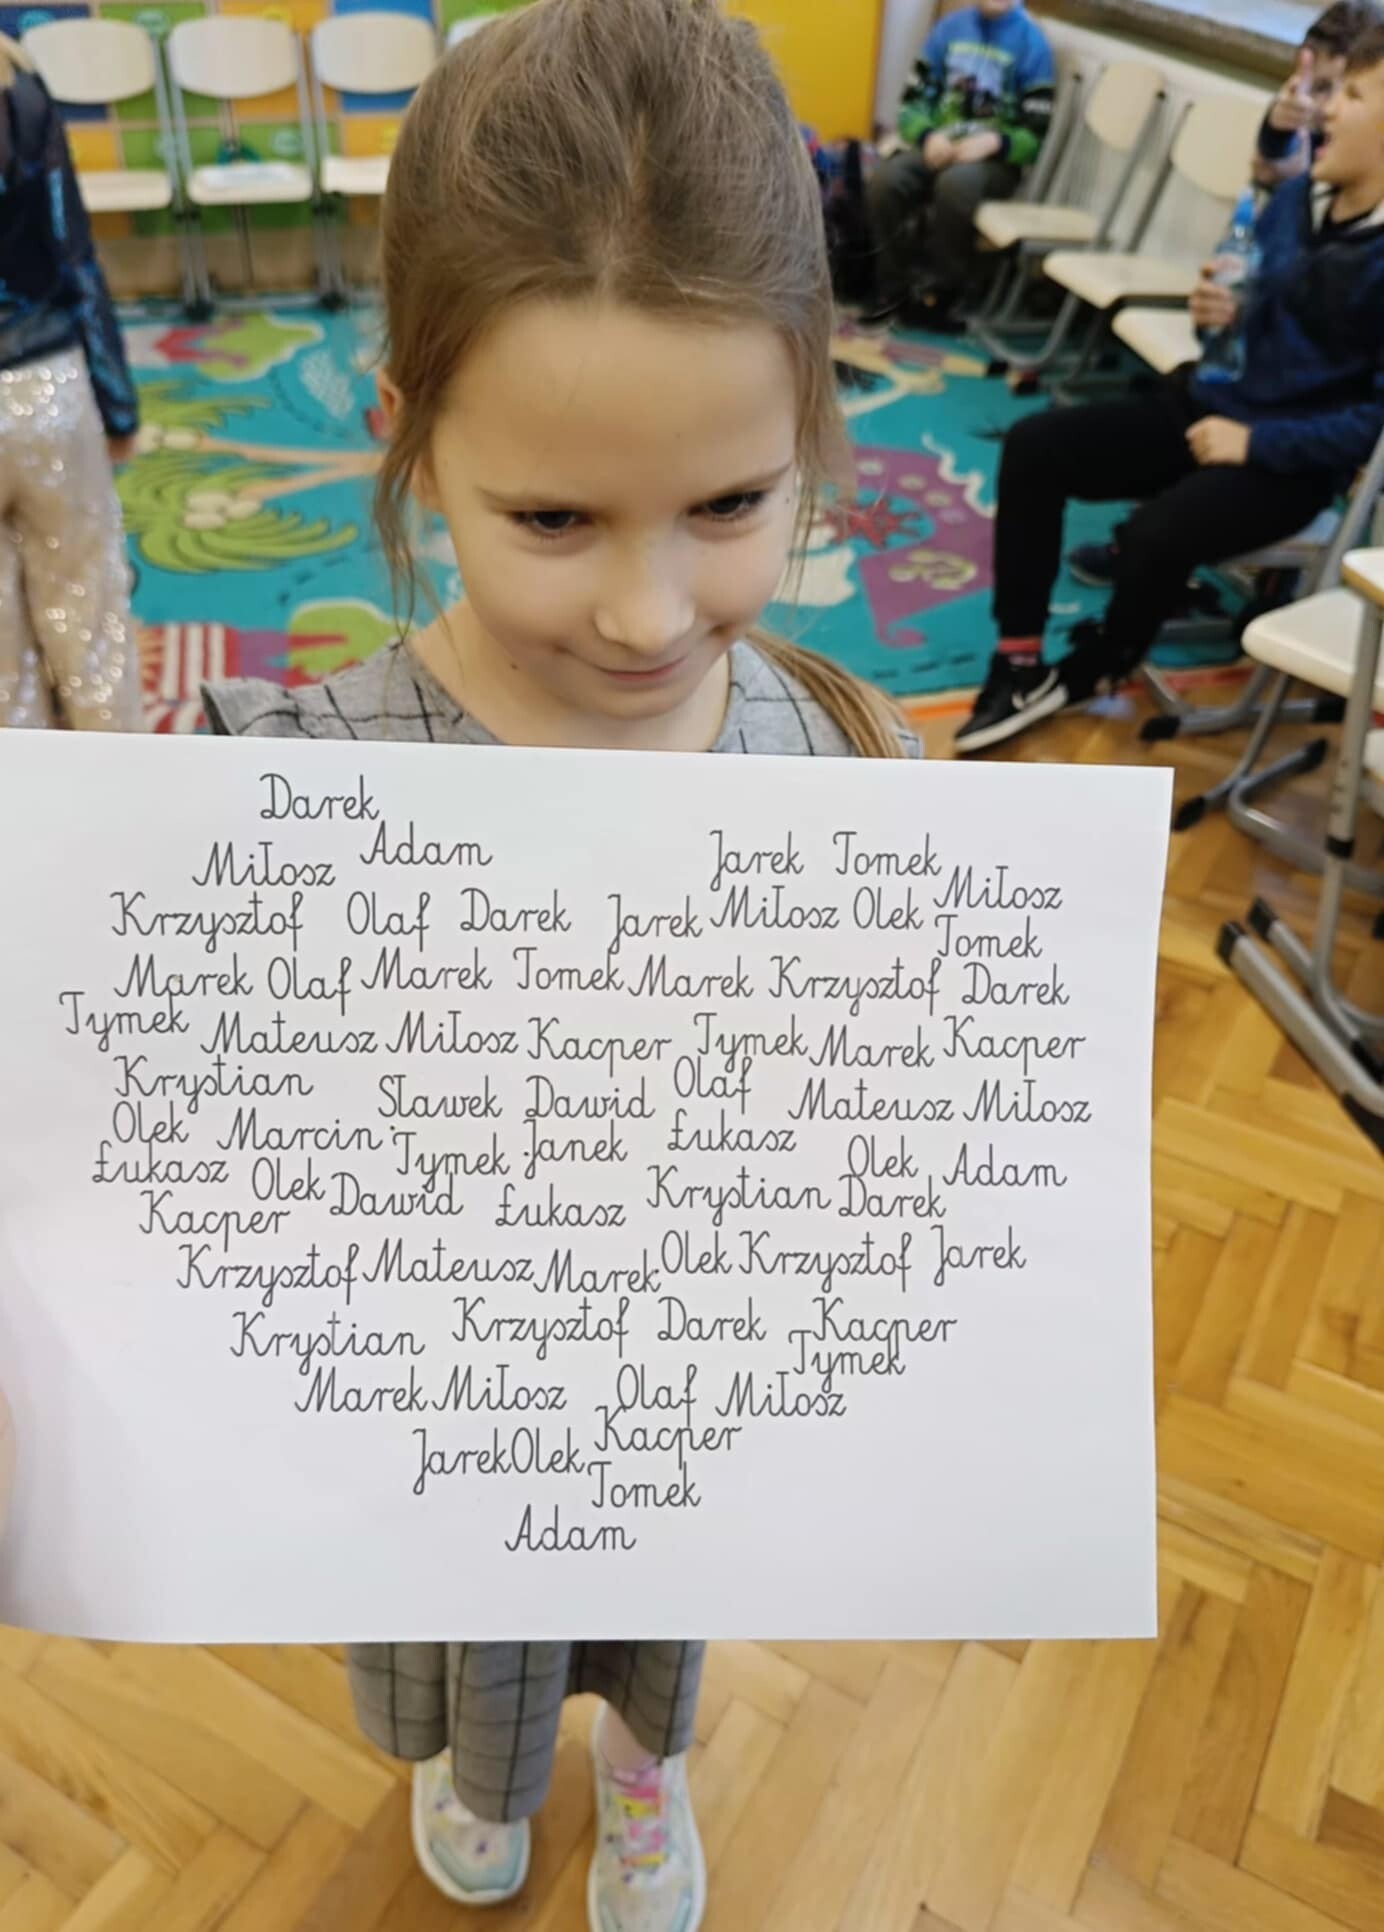 Darek
Miłosz Adam Jarek Tomek Miłosz
Krzysztof Olaf Darek Jarek Miłosz Olek Tomek
Marek Olaf Marek Tomek Marek Krzysztof Darek
Tymek Mateusz Miłosz Kacper Tymek Marek Kacper
Krystian Sławek Dawid Olaf Mateusz Miłosz
Olek Marcin Tymek Janek Łukasz Olek Adam
Łukasz Olek Dawid Łukasz Krystian Darek
Kacper
Krzysztof Mateusz Marek Olek Krzysztof Jarek
Krystian Krzysztof Darek Kacper
Tymek
Marek Miłosz Olaf Miłosz
Jarek Olek Kacper
Tomek
Adam